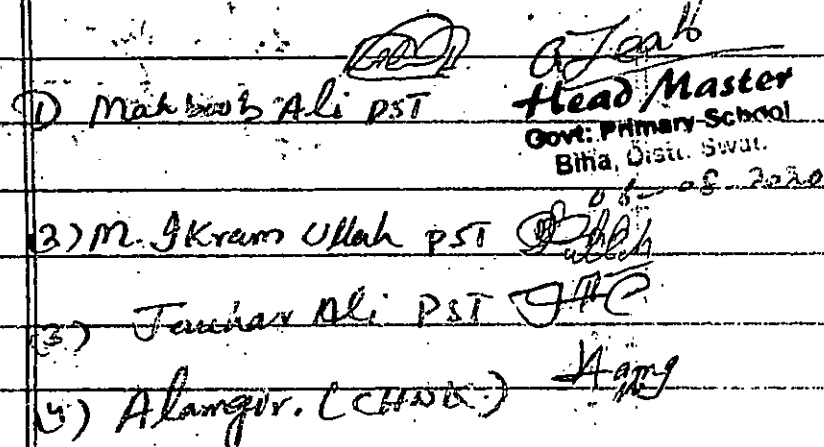 1) Mahboob Ali PST
Head Master
Govt: Primary School
Biha, Distt. Swat.
08-2020
2) M. Ikram Ullah PST
3) Jauhar Ali PST
4) Alamgir. (CHWK.)